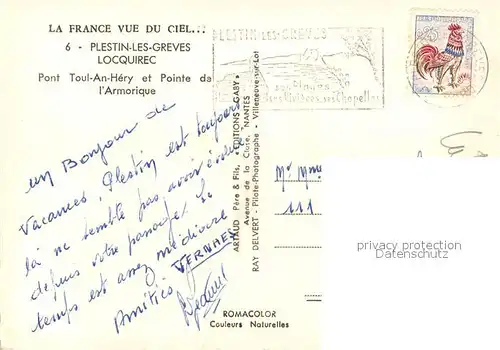 LA FRANCE VUE DU CIEL...
6 - PLESTIN-LES-GREVES
LOCQUIREC
Pont Toul-An-Héry et Pointe de
l'Armorique
PLESTIN-LES-GREVES
ses Plages
Un Bonjour de
Vacances, Plestin est toujours
là ne semble pas avoir évolué
depuis votre passage, le
temps est assez médiocre
Amitiés VERNHES
ARTAUD Père & Fils, "EDITIONS GABY"
Avenue de la Close, NANTES
RAY DELVERT - Pilote-Photographe - Villeneuve-sur-Lot
Mr Mme
111
privacy protection
Datenschutz
ROMACOLOR
Couleurs Naturelles